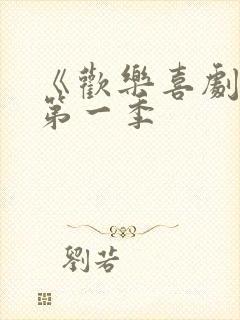 《歡樂喜劇
第一季
劉茗